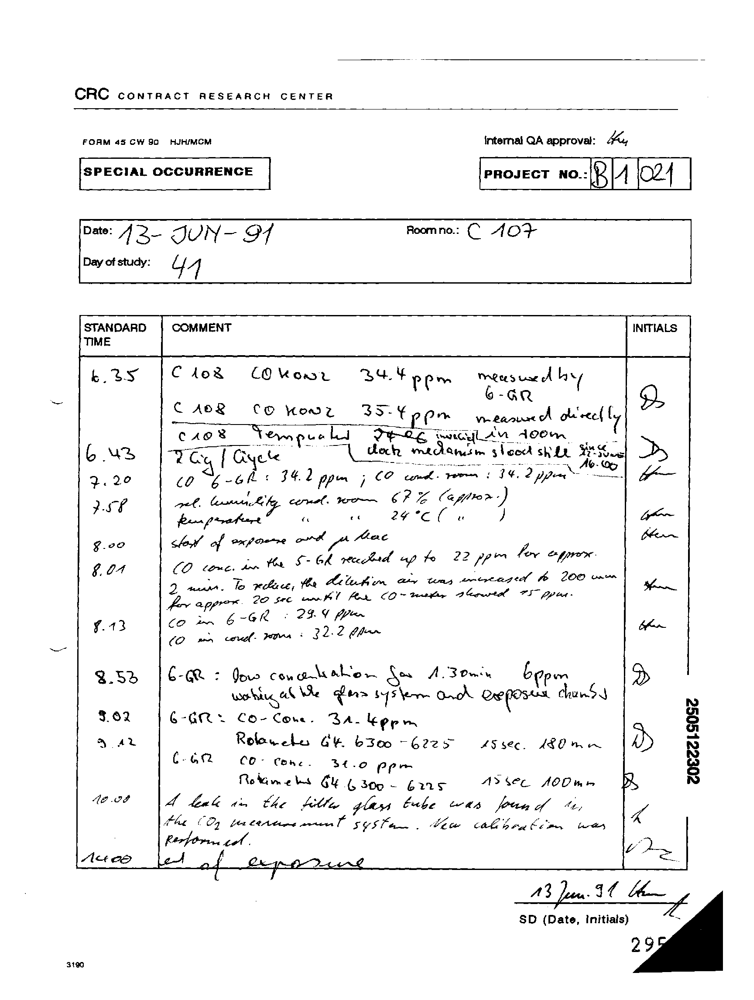 CRC CONTRACT RESEARCH CENTER
FORM 45 CW 90 HJH/MCM
Internal QA approval:
SPECIAL OCCURRENCE
PROJECT NO.: B 1 021
Date: 13-JUN-91
Room no.: C 107
Day of study: 41
STANDARD TIME
COMMENT
INITIALS
6.35 C 108 CO KONZ 34.4 ppm measured by
6-GR
C 108 CO KONZ 35.4 ppm measured directly
C 108 in room
6.43 2 Cig / clock mechanism stood still since
16.00
7.20 CO 6-GR : 34.2 ppm ; CO cond. room : 34.2 ppm
7.58 rel. humidity cond. room 67% (approx.)
temperature " " 24°C ( " )
8.00 start of exposure and
8.01 CO conc. in the 5-GR reached up to 22 ppm for approx.
2 min. To reduce, the dilution air was increased to 200 mm
for approx. 20 sec until the CO-meter showed 15 ppm.
8.13 CO in 6-GR : 29.4 ppm
CO in cond. room : 32.2 ppm
8.53 6-GR : low concentration for 1.30min 6ppm
at the glass system and exposure
9.02 6-GR : CO-Conc. 31.4ppm
9.12 Rotameter G4. 6300-6225 15sec. 180mm
6-GR CO-conc. 31.0 ppm
Rotameter G4 6300-6225 15sec 100mm
10.00 A leak in the filter glass tube was found in
the CO2 measurement system. New calibration was
performed.
14.00 of exposure
13 Jun. 91
SD (Date, Initials)
2505122302
295
3190